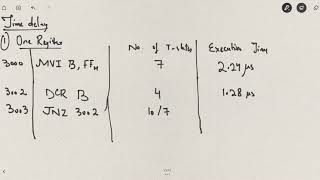 Time delay
① One Register
No. of T-states Execution Time
3000 MVI B, FFH 7 2.24 μs
3002 DCR B 4 1.28 μs
3003 JNZ 3002 10/7